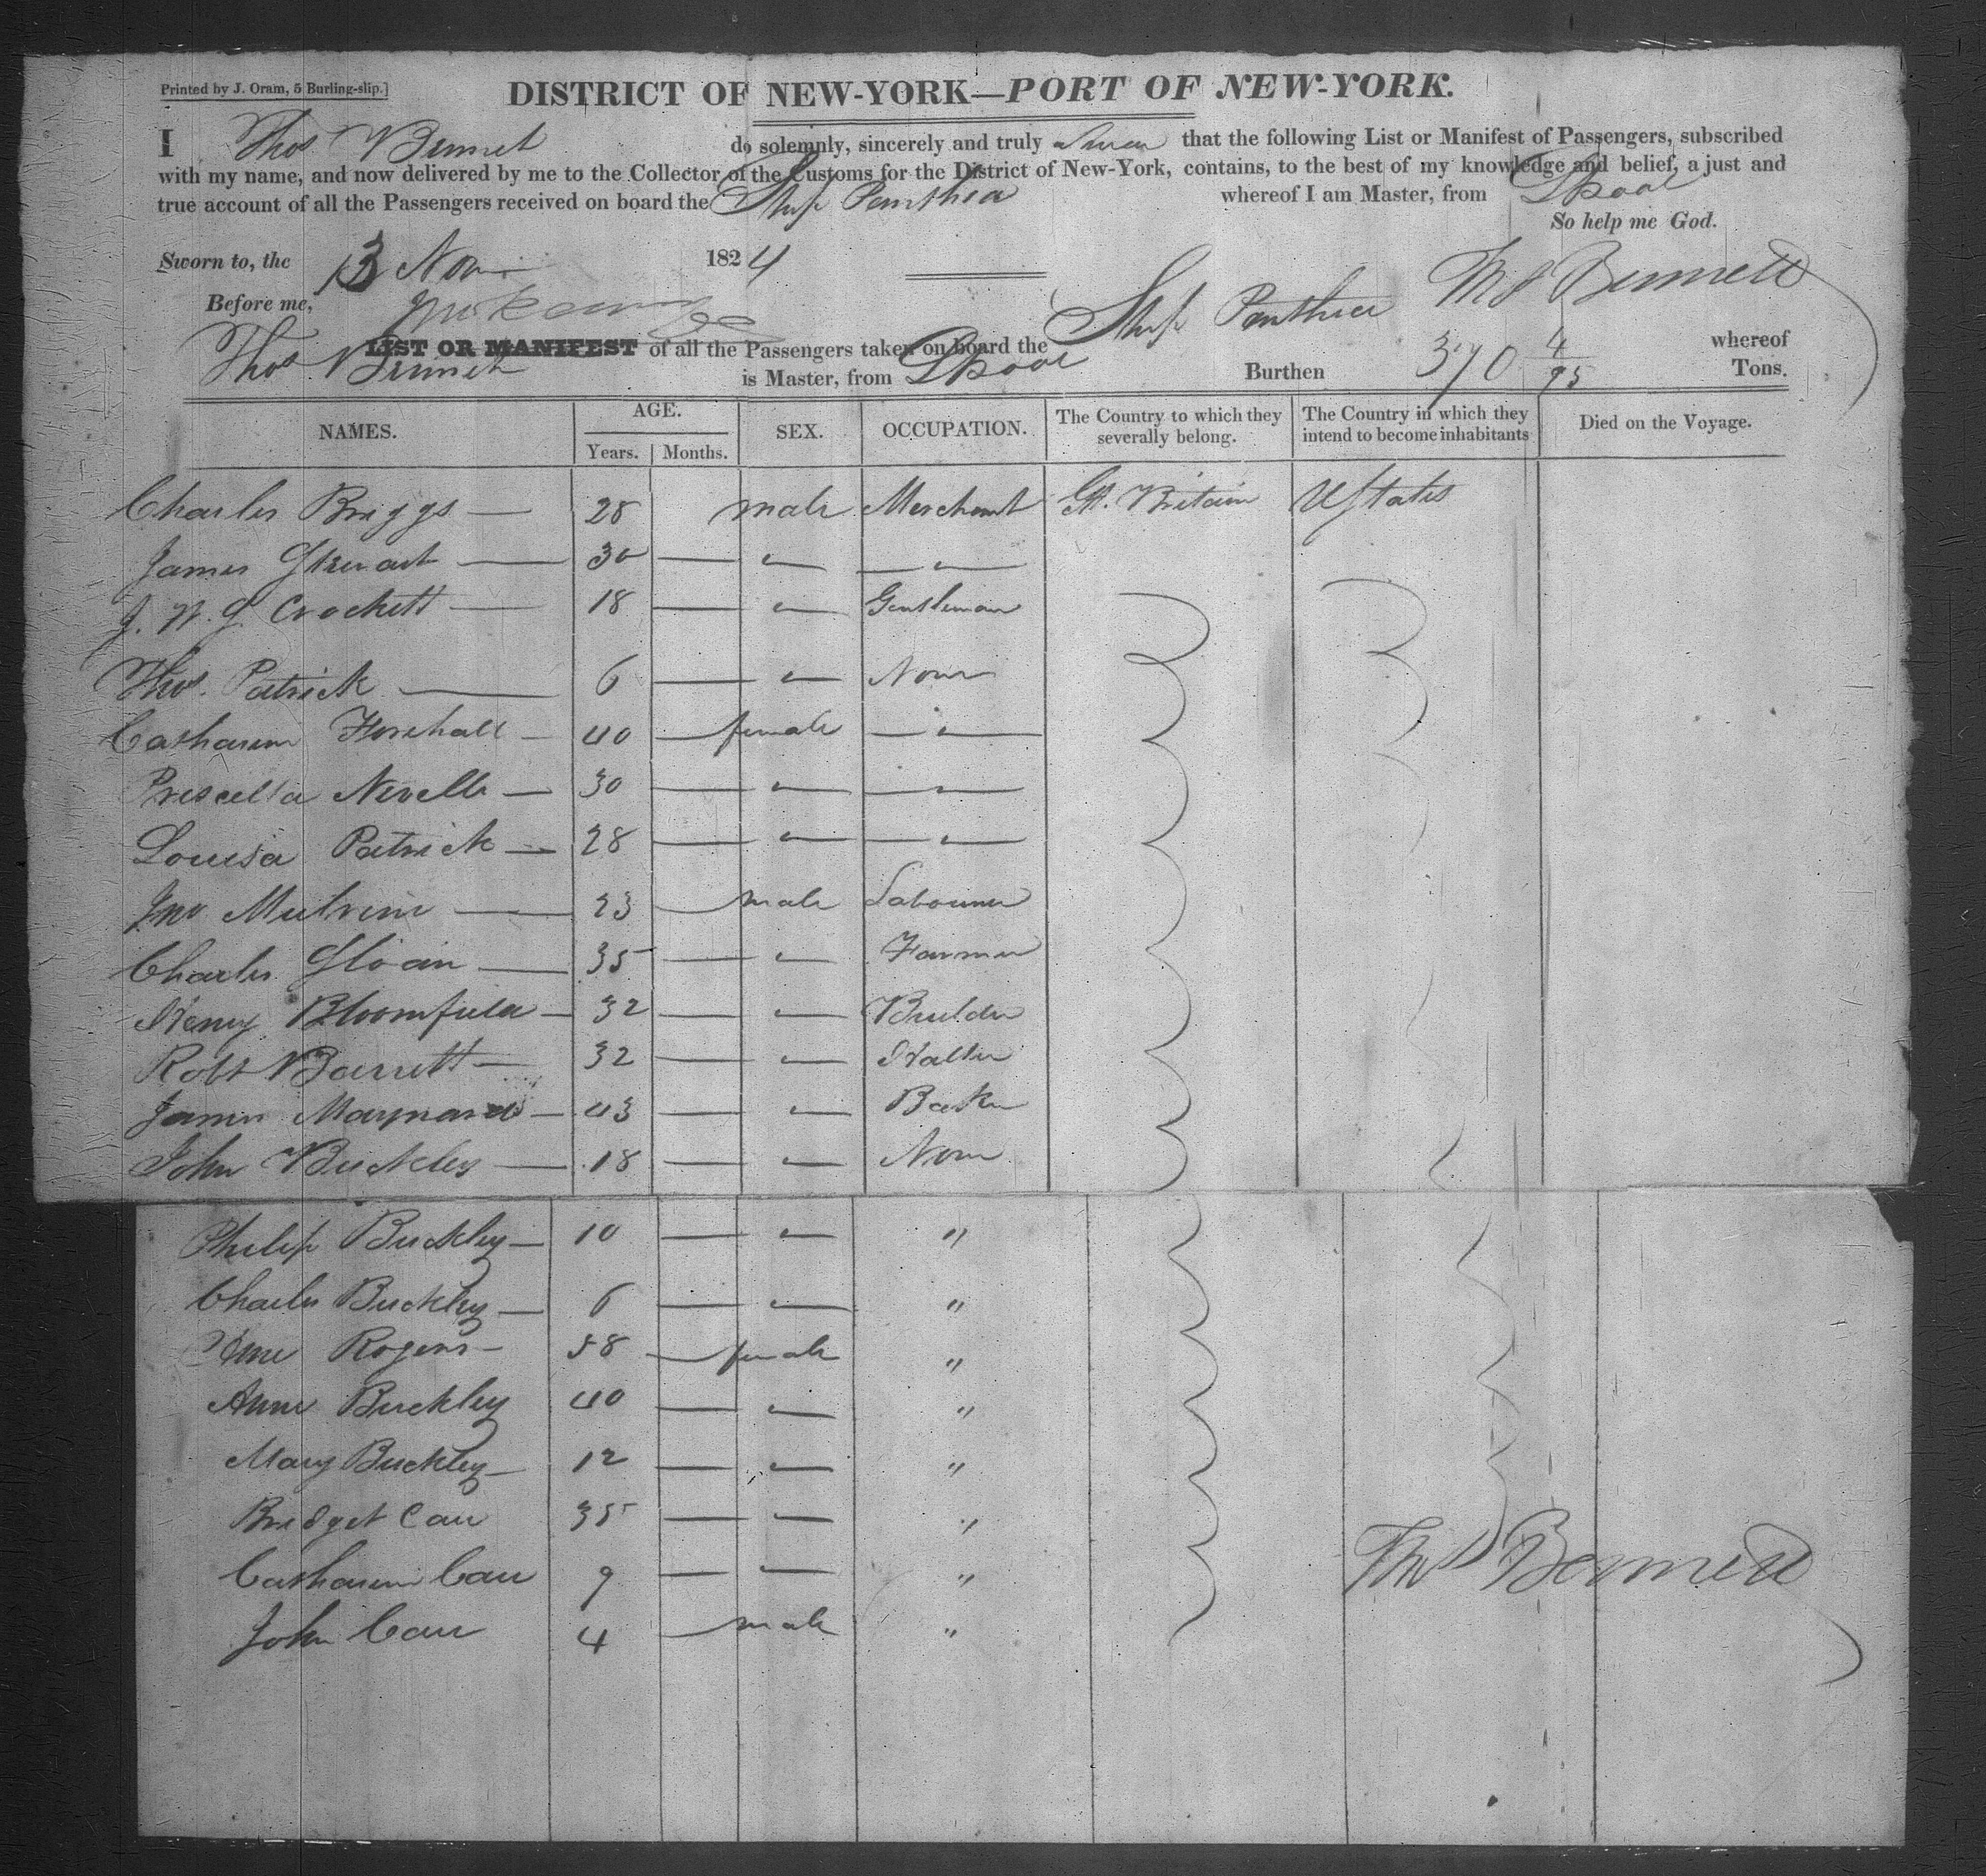 Printed by J. Oram, 5 Burling-slip.]
DISTRICT OF NEW-YORK—PORT OF NEW-YORK.
I Thos Bennet do solemnly, sincerely and truly swear that the following List or Manifest of Passengers, subscribed
with my name, and now delivered by me to the Collector of the Customs for the District of New-York, contains, to the best of my knowledge and belief, a just and
true account of all the Passengers received on board the Ship Panthea whereof I am Master, from Lpool
So help me God.
Sworn to, the 13 Nov 1824
Thos Bennett
Before me,
LIST OR MANIFEST of all the Passengers taken on board the Ship Panthea whereof
Thos Bennet is Master, from Lpool Burthen 370 4/95 Tons.
NAMES. AGE. Years. Months. SEX. OCCUPATION. The Country to which they severally belong. The Country in which they intend to become inhabitants Died on the Voyage.
Charles Briggs — 28 male Merchant Gt. Britain UStates
James Stewart — 30 — " — " —
J. W. G Crockett — 18 — " Gentleman
Thos. Patrick — 6 — " None
Catharine Horehall — 40 — female — " —
Priscella Nevelle — 30 — " — " —
Louisa Patrick — 28 — " — " —
Jno Mulvine — 23 — male Labourer
Charles Sloan — 35 — " Farmer
Henry Bloomfield — 32 — " Builder
Robt Barrett — 32 — " Hatter
James Maynard — 43 — " Baker
John Buckley — 18 — " None
Philip Buckley — 10 — " "
Charles Buckley — 6 — " "
Anne Rogers — 58 — female "
Anne Buckley 40 — " "
Mary Buckley — 12 — " "
Bridget Carr 35 — " "
Catharine Carr 9 — " "
Thos Bennett
John Carr 4 — male "